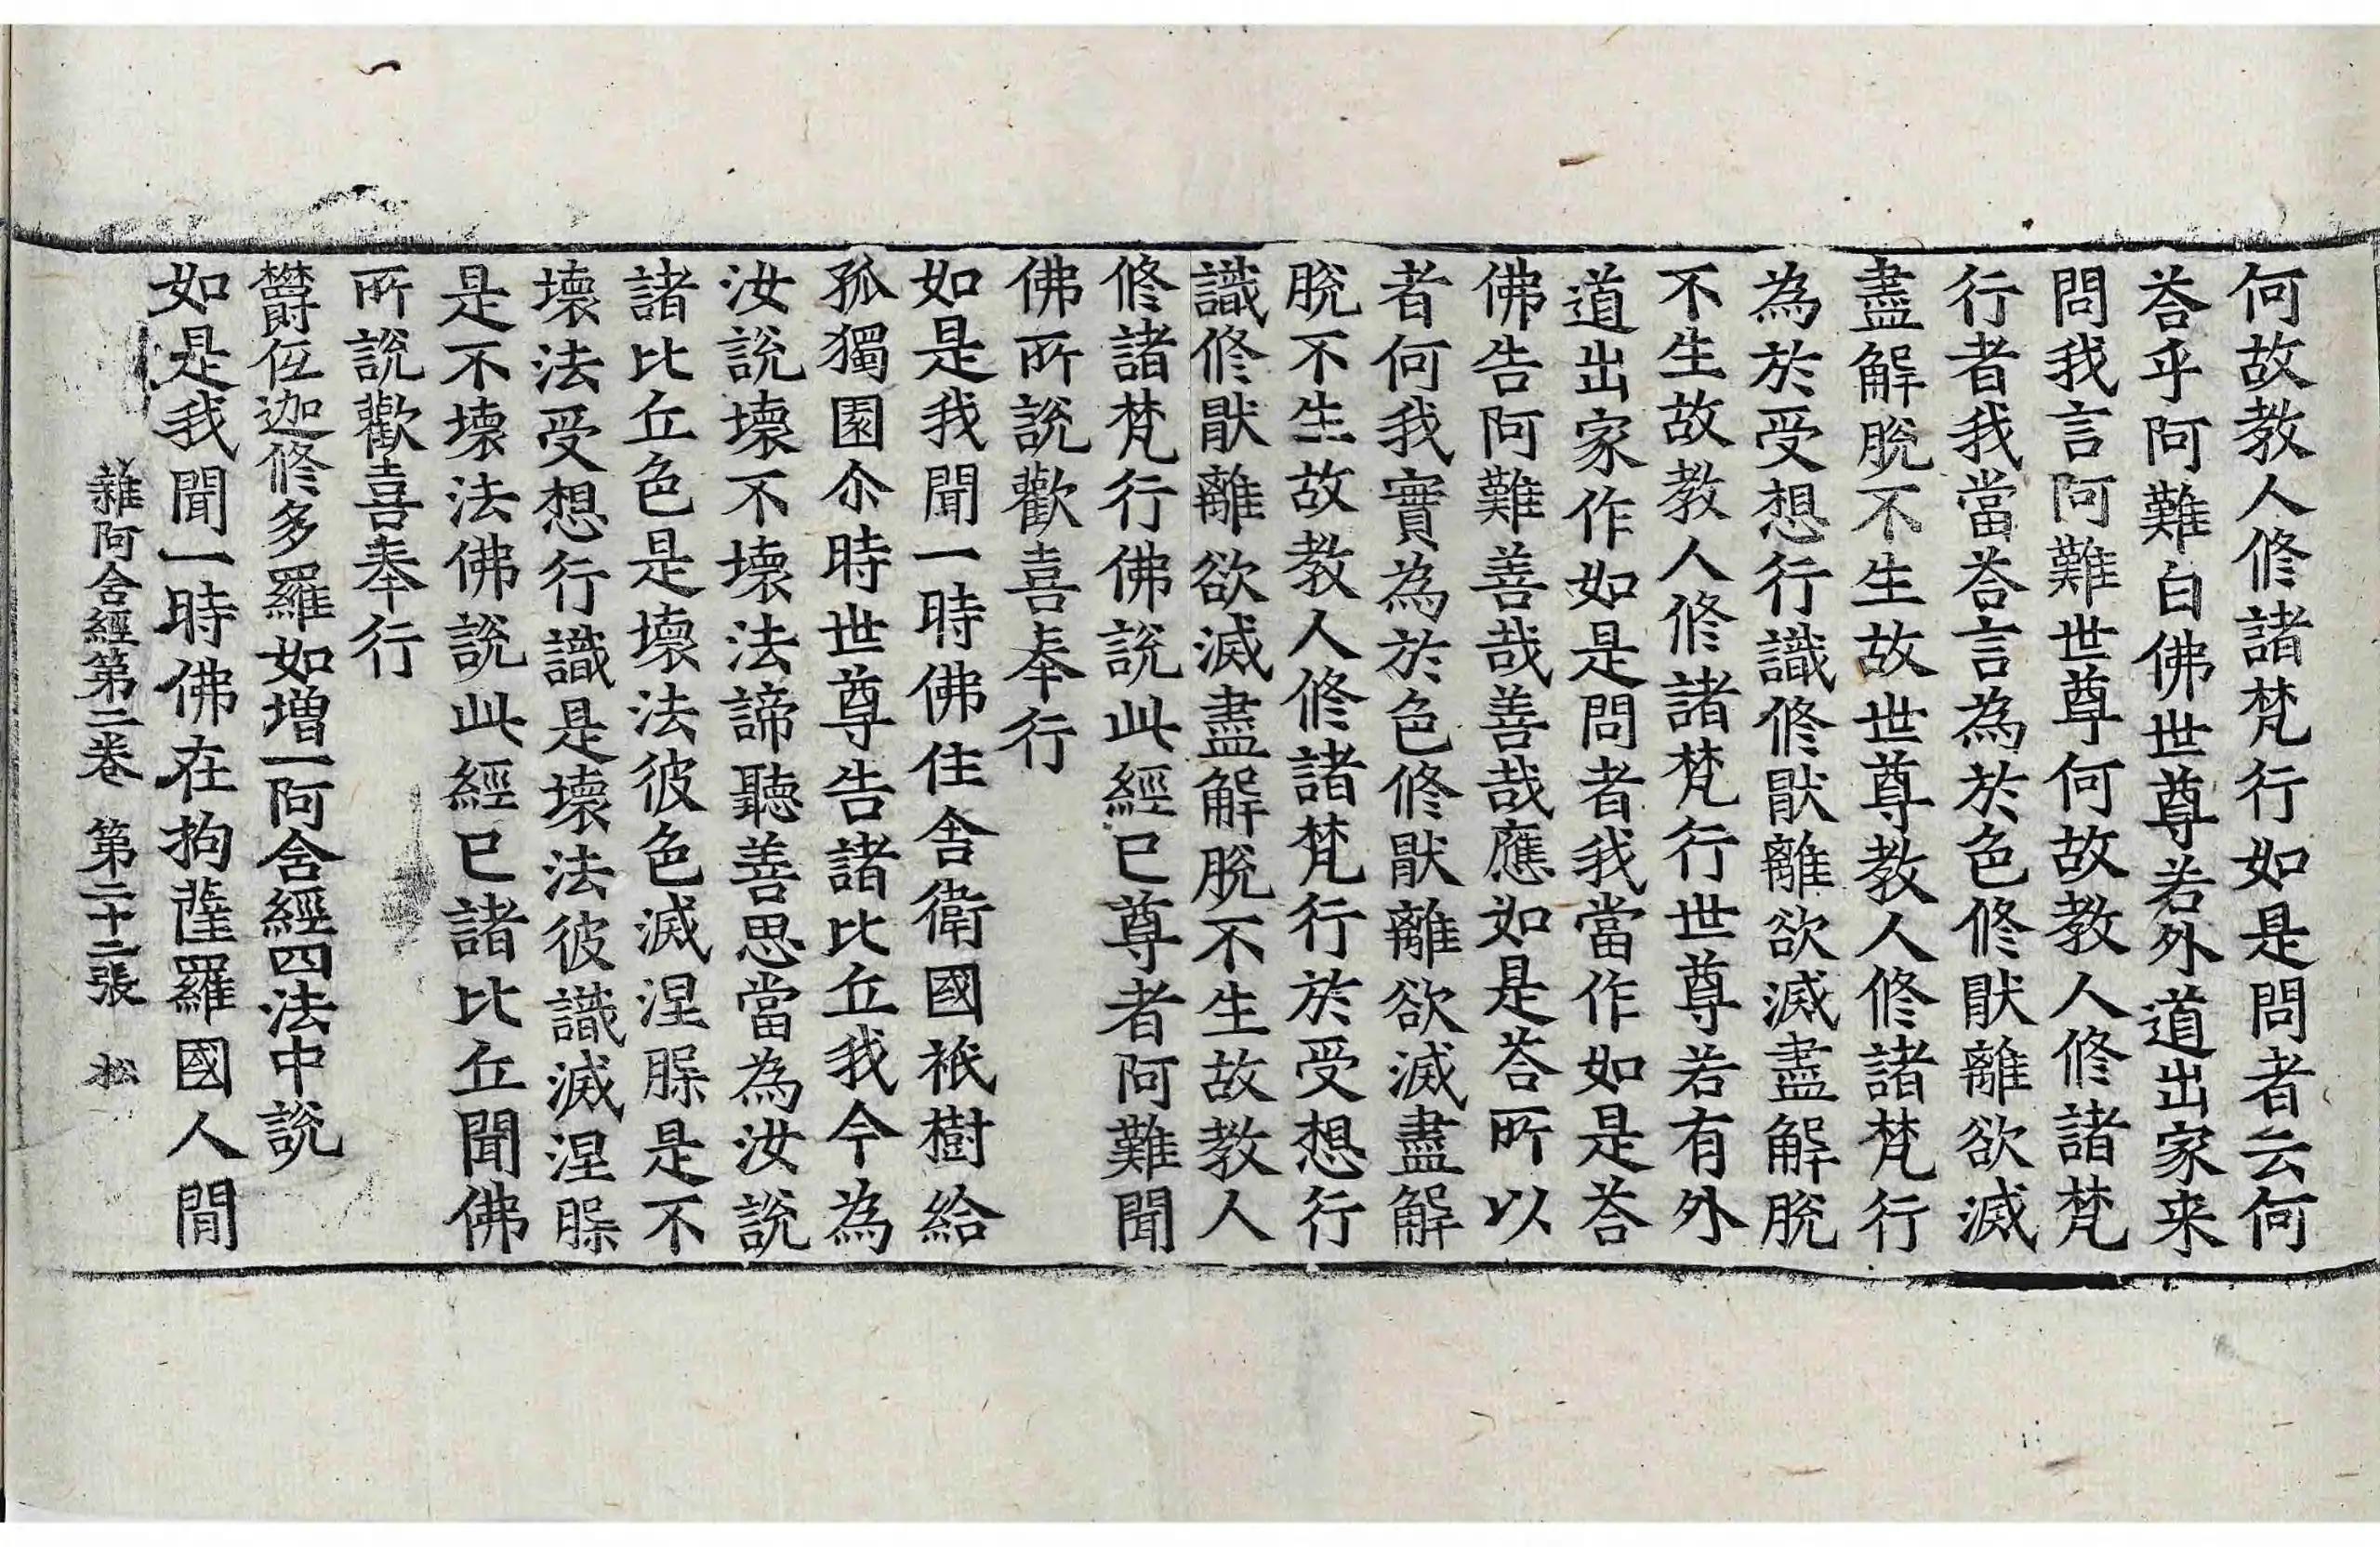 何故教人修諸梵行如是問者云何
荅乎阿難白佛世尊若外道出家来
問我言阿難世尊何故教人修諸梵
行者我當荅言為於色修猒離欲滅
盡解脫不生故世尊教人修諸梵行
為於受想行識修猒離欲滅盡解脫
不生故教人修諸梵行世尊若有外
道出家作如是問者我當作如是荅
佛告阿難善哉善哉應如是荅所以
者何我實為於色修猒離欲滅盡解
脫不生故教人修諸梵行於受想行
識修猒離欲滅盡解脫不生故教人
修諸梵行佛說此經已尊者阿難聞
佛所說歡喜奉行
如是我聞一時佛住舍衛國祇樹給
孤獨園尒時世尊告諸比丘我今為
汝說壞不壞法諦聽善思當為汝說
諸比丘色是壞法彼色滅涅槃是不
壞法受想行識是壞法彼識滅涅槃
是不壞法佛說此經已諸比丘聞佛
所說歡喜奉行
欝低迦修多羅如增一阿含經四法中說
如是我聞一時佛在拘薩羅國人間
雜阿含經第二卷 第二十二張 松